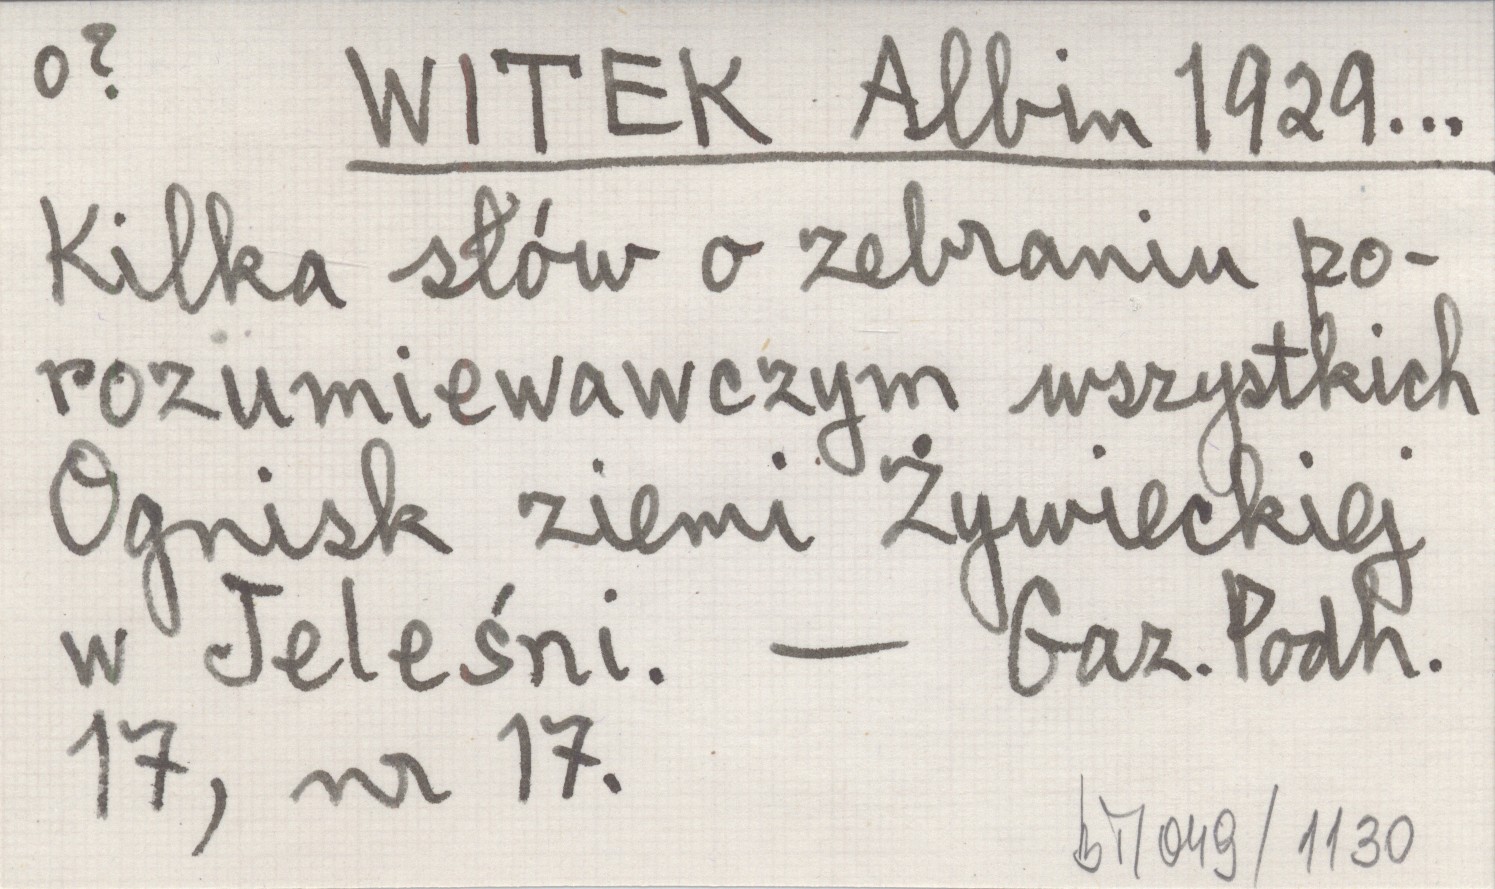 o? WITEK Albin 1929...
Kilka słów o zebraniu po-
rozumiewawczym wszystkich
Ognisk ziemi Żywieckiej
w Jeleśni. — Gaz. Podh.
17, nr 17.
bT/049/1130